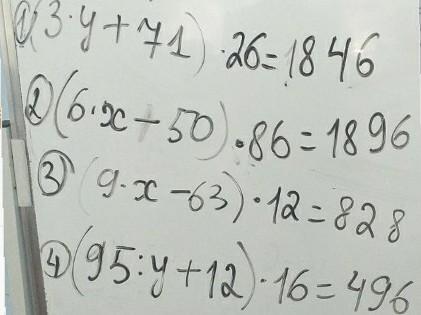 ① (3·y+71)·26=1846
② (6·x-50)·86=1896
③ (9·x-63)·12=828
④ (95:y+12)·16=496